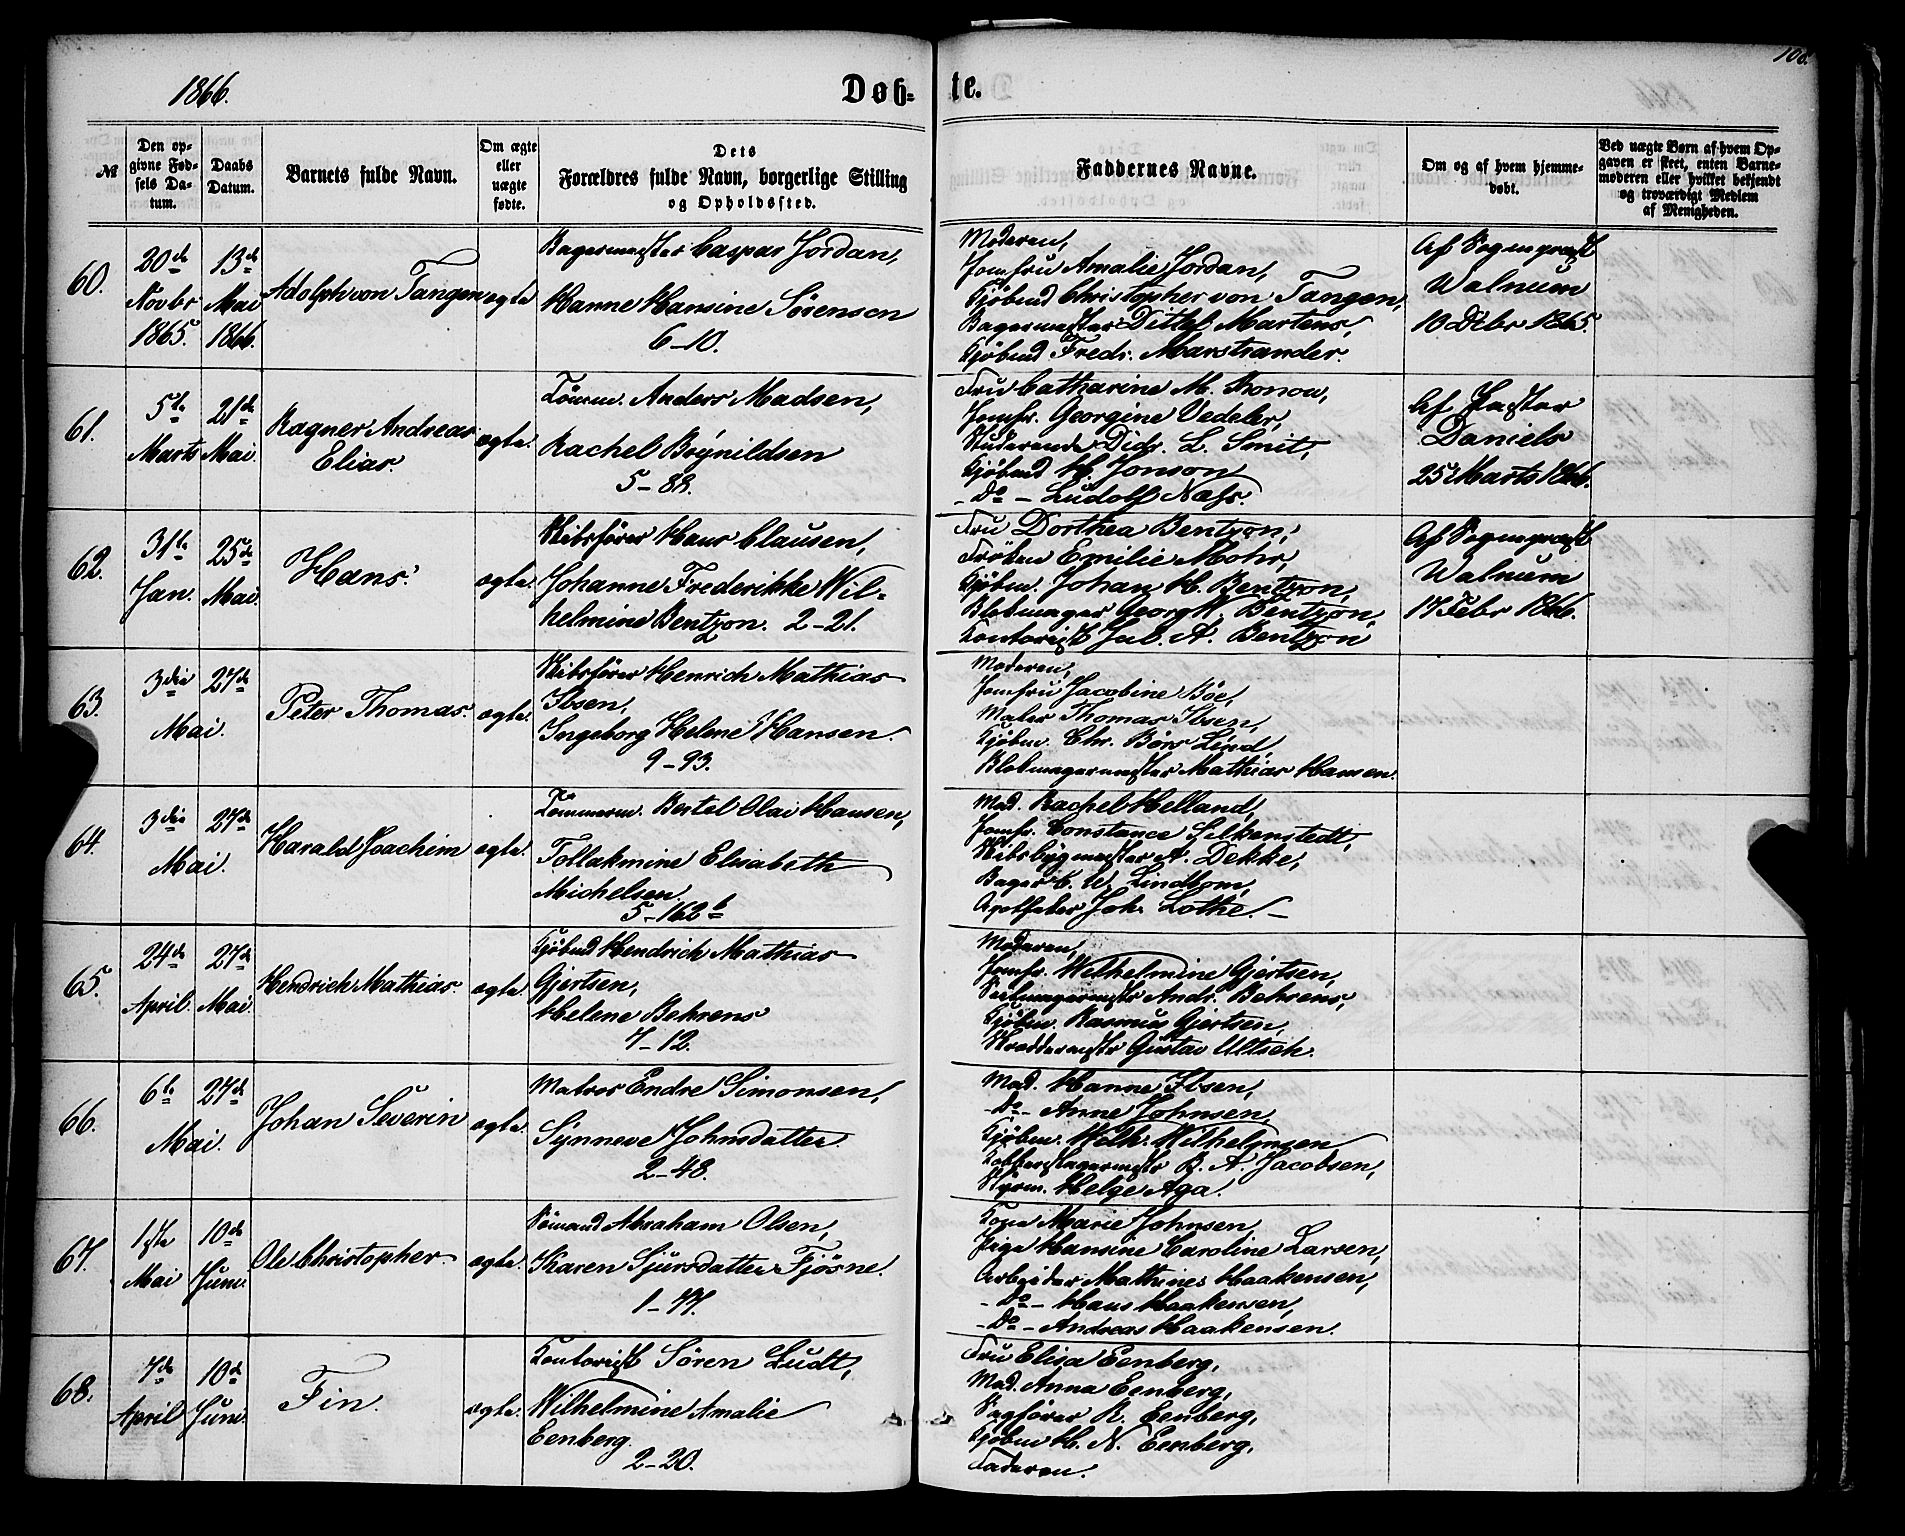 1866.
Døb=
te.
108.
№
Den op-
givne Fød-
sels Da-
tum.
Daabs
Datum.
Barnets fulde Navn.
Om ægte
eller
uægte
fødte.
Dets
Forældres fulde Navn, borgerlige Stilling
og Opholdssted.
Faddernes Navne.
Om og af hvem hjemme-
døbt.
Ved uægte Børn af hvem Op-
gaven er skeet, enten Barne-
moderen eller hvilket bekjendt
og troværdigt Medlem
af Menigheden.
60.
20de
Novbr
1865.
13de
Mai
1866.
Adolph von Tangen
ægte
Bagermester Caspar Jordan,
Hanne Hansine Sørensen
6-10.
Moderen,
Jomfru Amalie Jordan,
Kjøbmd Christopher von Tangen,
Bagermester Dittel Martens,
Kjøbmd Fredr. Marstrander.
Af Sognepræst
Walnum
10 Dcbr 1865.
61.
5te
Marts
21de
Mai.
Ragner Andreas
Elias.
ægte.
Tömm. Anders Madsen,
Rachel Brynildsen
5-88.
Fru Catharine M. Konow,
Jomfr. Georgine Vedeler,
Studerende Didr. L. Smit,
Kjøbmd H. Jonson
-Do- Ludolf Næss.
Af Pastor
Daniels
25 Marts 1866.
62.
31te
Jan.
25de
Mai.
Hans.
ægte.
Skibsfører Hans Clausen,
Johanne Frederikke Wil=
helmine Bentzon. 2-21.
Fru Dorthea Bentzon,
Frøken Emilie Mohr,
Kjøbm. Johan H. Bentzon,
Blokmager Georg W. Bentzon,
Kontorist Jul. A. Bentzon
Af Sognepræst
Walnum
17 Febr 1866.
63.
3die
27de
Mai.
Peter Thomas.
ægte.
Skibsfører Henrich Mathias
Ibsen,
Ingeborg Helene Hansen.
9-93.
Moderen,
Jomfru Jacobine Böe,
Maler Thomas Ibsen,
Kjøbm. Chr. Börs Lind,
Blokmagermester Mathias Hansen.
64.
3die
27de
Mai.
Harald Joachim
ægte.
Tömmerm. Bertel Olai Hansen,
Tollakmine Elisabeth
Michelsen.
5-162b
Mad. Rachel Helland,
Jomfr. Constance Silkenstedt,
Skibsbygmester A. Dekke,
Bager C. W. Lindtom,
Apotheker Joh. Lothe.-
65.
24de
April.
27de
Mai.
Hendrich Mathias.
ægte.
Kjøbmd Hendrich Mathias
Gjertsen,
Helene Behrens
7-12.
Moderen,
Jomfr. Wilhelmine Gjertsen,
Seilmagermestr Andr. Behrens,
Kjøbm. Rasmus Gjertsen,
Skræddermestr Gustav Ultsch.
66.
6te
27de
Mai.
Johan Severin
ægte.
Matros Endre Simonsen,
Synneve Johnsdatter
2-48.
Mad. Hanne Ibsen,
-Do- Anne Johnsen
Kjøbm. Wilh. Wilhelmsen
Kobberslagermestr B. A. Jacobsen,
Styrm. Helge Aga.
67.
1ste
Mai
10de
Juni.
Ole Christopher.
ægte.
Sømand Abraham Olsen,
Karen Sjursdatter Fjösne.
1-77.
Kone Marie Johnsen,
Pige Hansine Caroline Larsen,
Arbeider Mathines Haakensen,
-Do- Hans Haakensen,
-Do- Andreas Haakensen.
68.
7de
April
10de
Juni.
Fin.
ægte.
Kontorist Sören Ludt,
Wilhelmine Amalie
Eenberg.
2-20.
Fru Elisa Eenberg,
Mad. Anna Eenberg,
Sagfører R. Eenberg,
Kjøbm H. N. Eenberg,
Faderen.